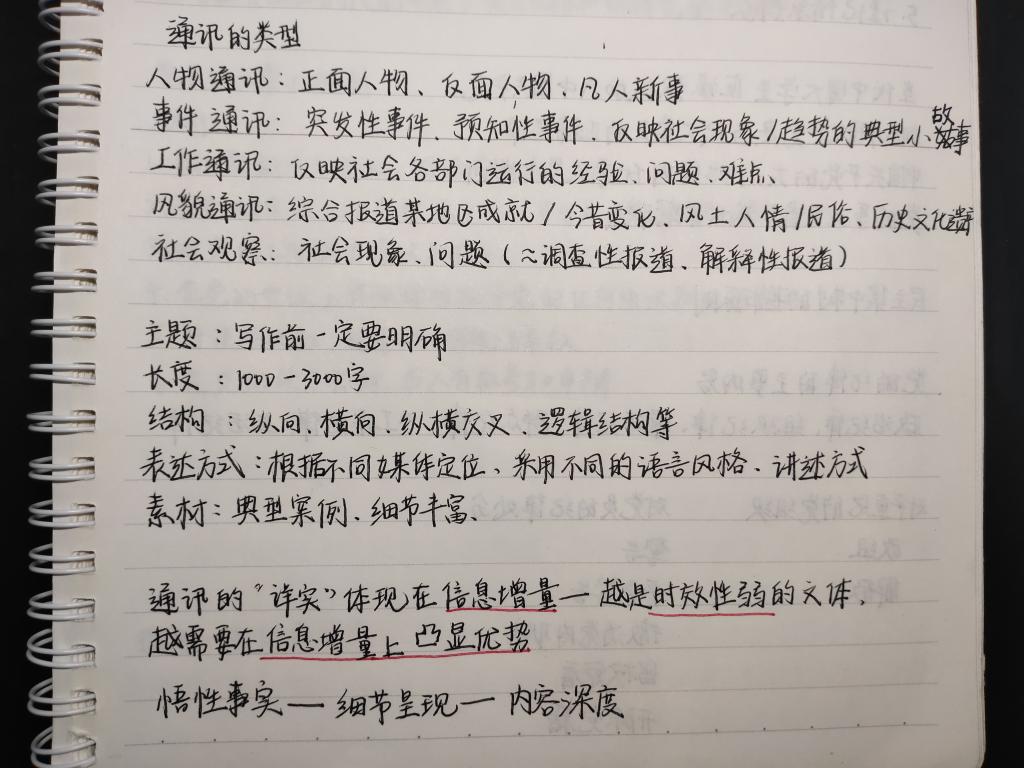 通讯的类型
人物通讯：正面人物、反面人物、凡人新事
事件通讯：突发性事件、预知性事件、反映社会现象/趋势的典型小故事
工作通讯：反映社会各部门运行的经验、问题、难点
风貌通讯：综合报道某地区成就/今昔变化、风土人情/民俗、历史文化遗
社会观察：社会现象、问题（≈调查性报道、解释性报道）
主题：写作前一定要明确
长度：1000-3000字
结构：纵向、横向、纵横交叉、逻辑结构等
表达方式：根据不同媒体定位、采用不同的语言风格、讲述方式
素材：典型案例、细节丰富、
通讯的“详实”体现在信息增量—越是时效性弱的文体，
越需要在信息增量上凸显优势
悟性事实—细节呈现—内容深度